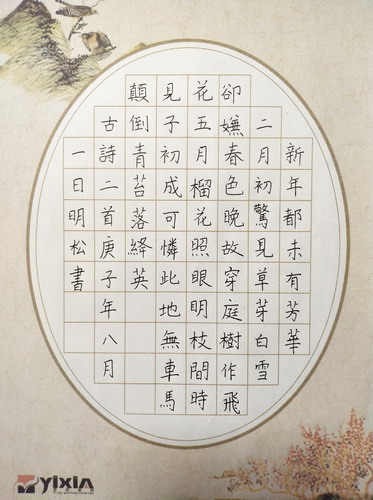 新年都未有芳華
二月初驚見草芽白雪
卻嫵春色晚故穿庭樹作飛
花五月榴花照眼明枝間時
見子初成可憐此地無車馬
顛倒青苔落絳英
古詩二首庚子年八月
一日明松書
yixin